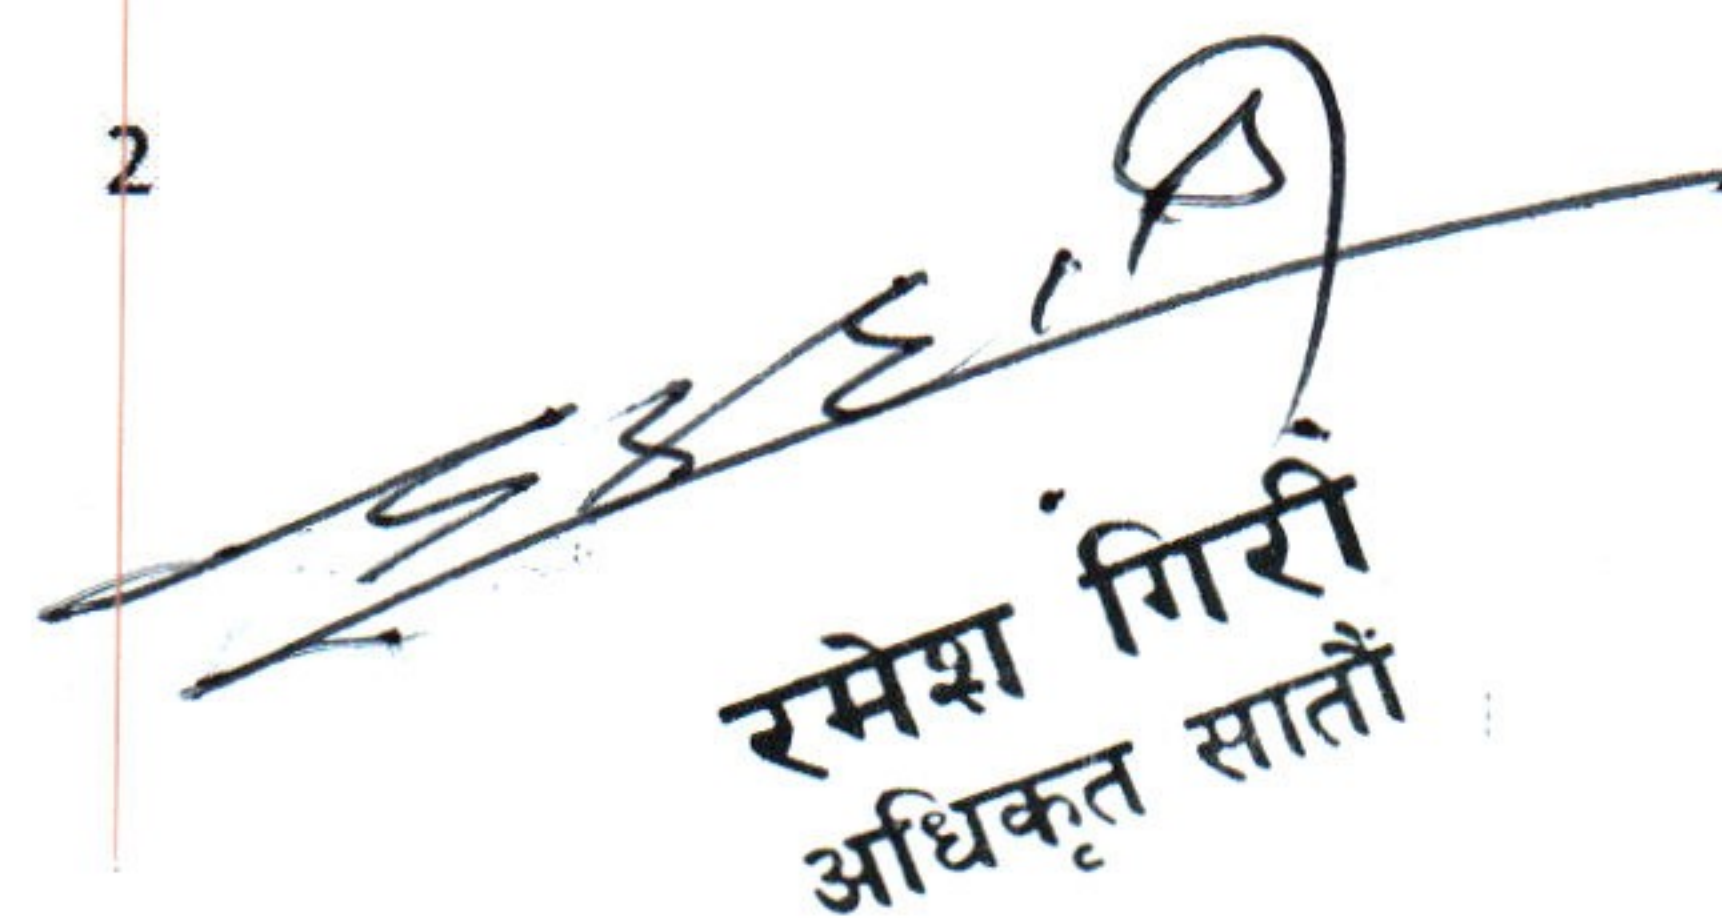 2
रमेश गिरी
अधिकृत सातौं